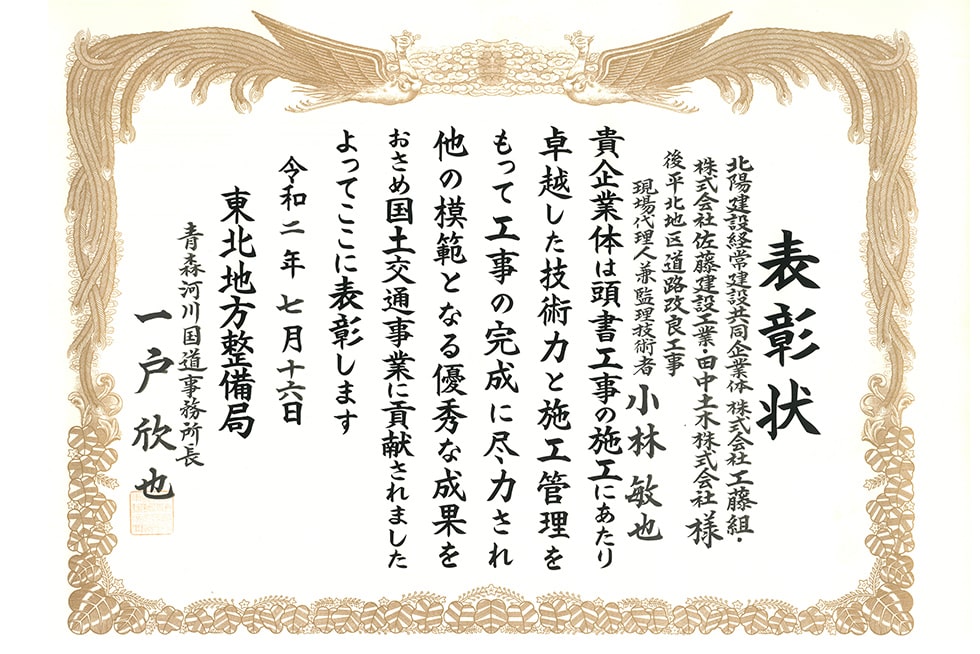 表彰状
北陽建設経常建設共同企業体 株式会社工藤組・
株式会社佐藤建設工業・田中土木株式会社 様
後平北地区道路改良工事
現場代理人兼監理技術者 小林 敏也
貴企業体は頭書工事の施工にあたり
卓越した技術力と施工管理を
もって工事の完成に尽力され
他の模範となる優秀な成果を
おさめ国土交通事業に貢献されました
よってここに表彰します
令和二年 七月十六日
東北地方整備局
青森河川国道事務所長
一戸 欣也